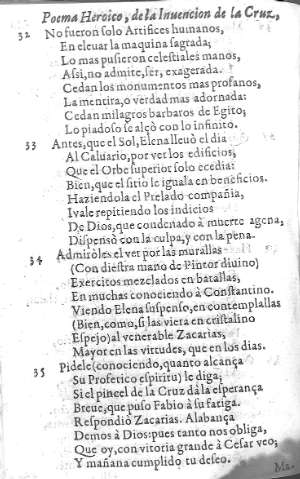 Poema Heroico, de la Inuencion de la Cruz,
32 No fueron solo Artifices humanos,
En eleuar la maquina sagrada;
Lo mas pusieron celestiales manos,
Assi, no admite, ser, exagerada.
Cedan los monumentos mas profanos,
La mentira, o verdad mas adornada:
Cedan milagros barbaros de Egito;
Lo piadoso se alçò con lo infinito.
33 Antes, que el Sol, Elena lleuò el dia
Al Caluario, por ver los edificios,
Que el Orbe superior solo ecedia:
Bien, que el sitio le iguala en beneficios.
Haziendola el Prelado compañia,
Iva le repitiendo los indicios
De Dios, que condenado à muerte agena,
Dispensò con la culpa, y con la pena.
34 Admiròles el ver por las murallas
(Con diestra mano de Pintor diuino)
Exercitos mezclados en batallas,
En muchas conociendo à Constantino.
Viendo Elena suspenso, en contemplallas
(Bien, como, si las viera en cristalino
Espejo) al venerable Zacarias,
Mayor en las virtudes, que en los dias.
35 Pidele (conociendo, quanto alcança
Su Profetico espiritu) le diga;
Si el pincel de la Cruz dà la esperança
Breue, que puso Fabio à su fatiga.
Respondiò Zacarias. Alabança
Demos à Dios: pues tanto nos obliga,
Que oy, con vitoria grande à Cesar veo;
Y mañana cumplido tu deseo.
Ma.